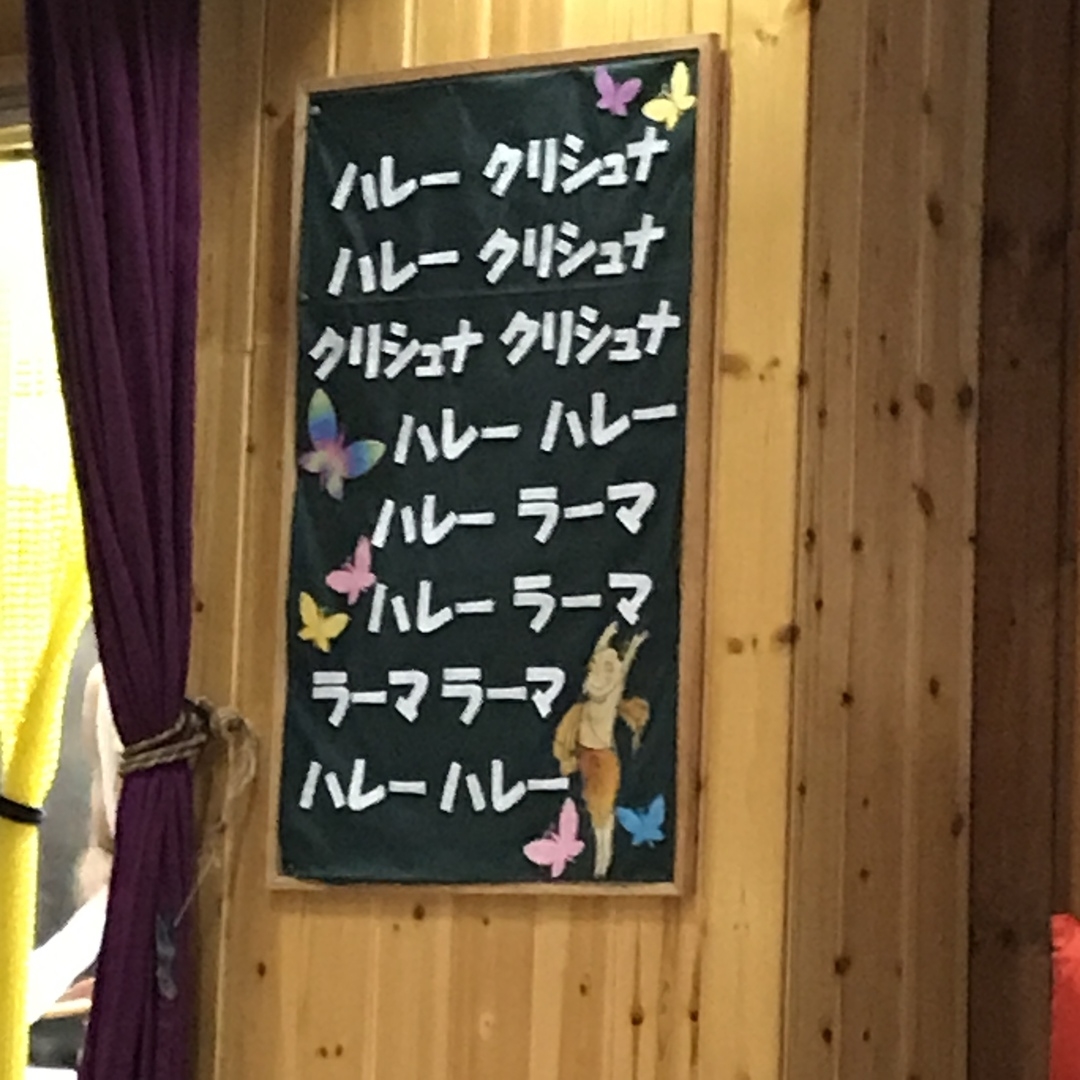 ハレー クリシュナ
ハレー クリシュナ
クリシュナ クリシュナ
ハレー ハレー
ハレー ラーマ
ハレー ラーマ
ラーマ ラーマ
ハレー ハレー